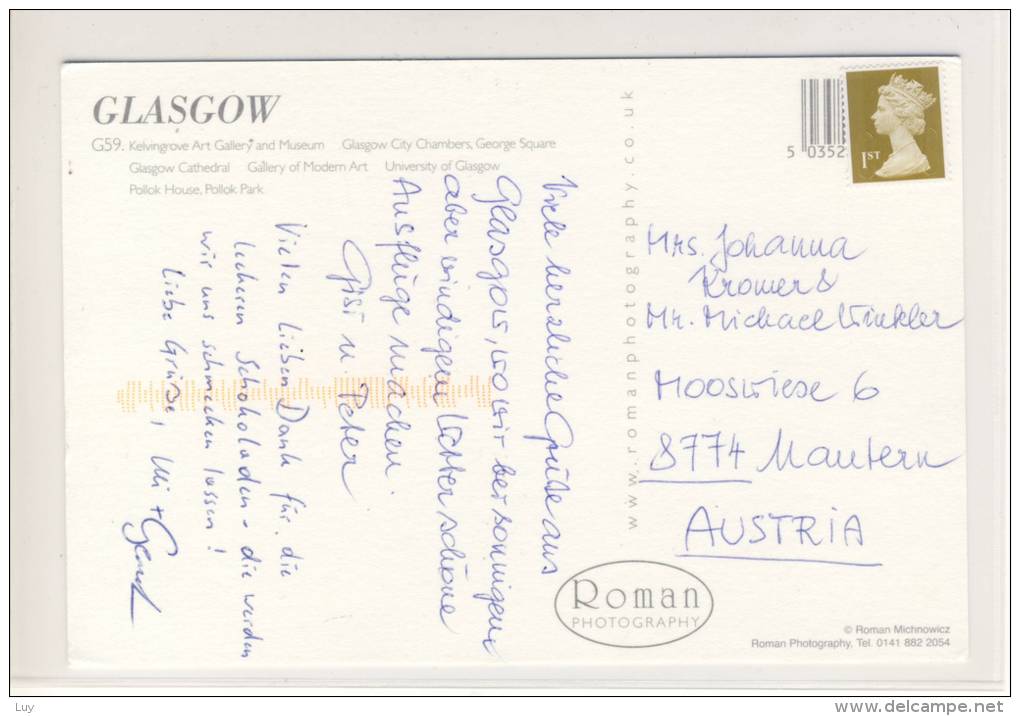 GLASGOW
G59. Kelvingrove Art Gallery and Museum Glasgow City Chambers, George Square
Glasgow Cathedral Gallery of Modern Art University of Glasgow
Pollok House, Pollok Park
Viele herzliche Grüße aus
Glasgow, wo wir bei sonnigem
aber windigem Wetter schöne
Ausflüge machen.
Gisi u. Peter
Vielen lieben Dank für die
leckeren Schokoladen - die werden
wir uns schmecken lassen!
Liebe Grüße, Uli + Gernot
www.romanphotography.co.uk
5 0352
1ST
Mrs. Johanna
Kromer &
Mr. Michael Winkler
Mooswiese 6
8774 Mautern
AUSTRIA
Roman
PHOTOGRAPHY
© Roman Michnowicz
Roman Photography, Tel. 0141 882 2054
Luy
www.delcampe.net